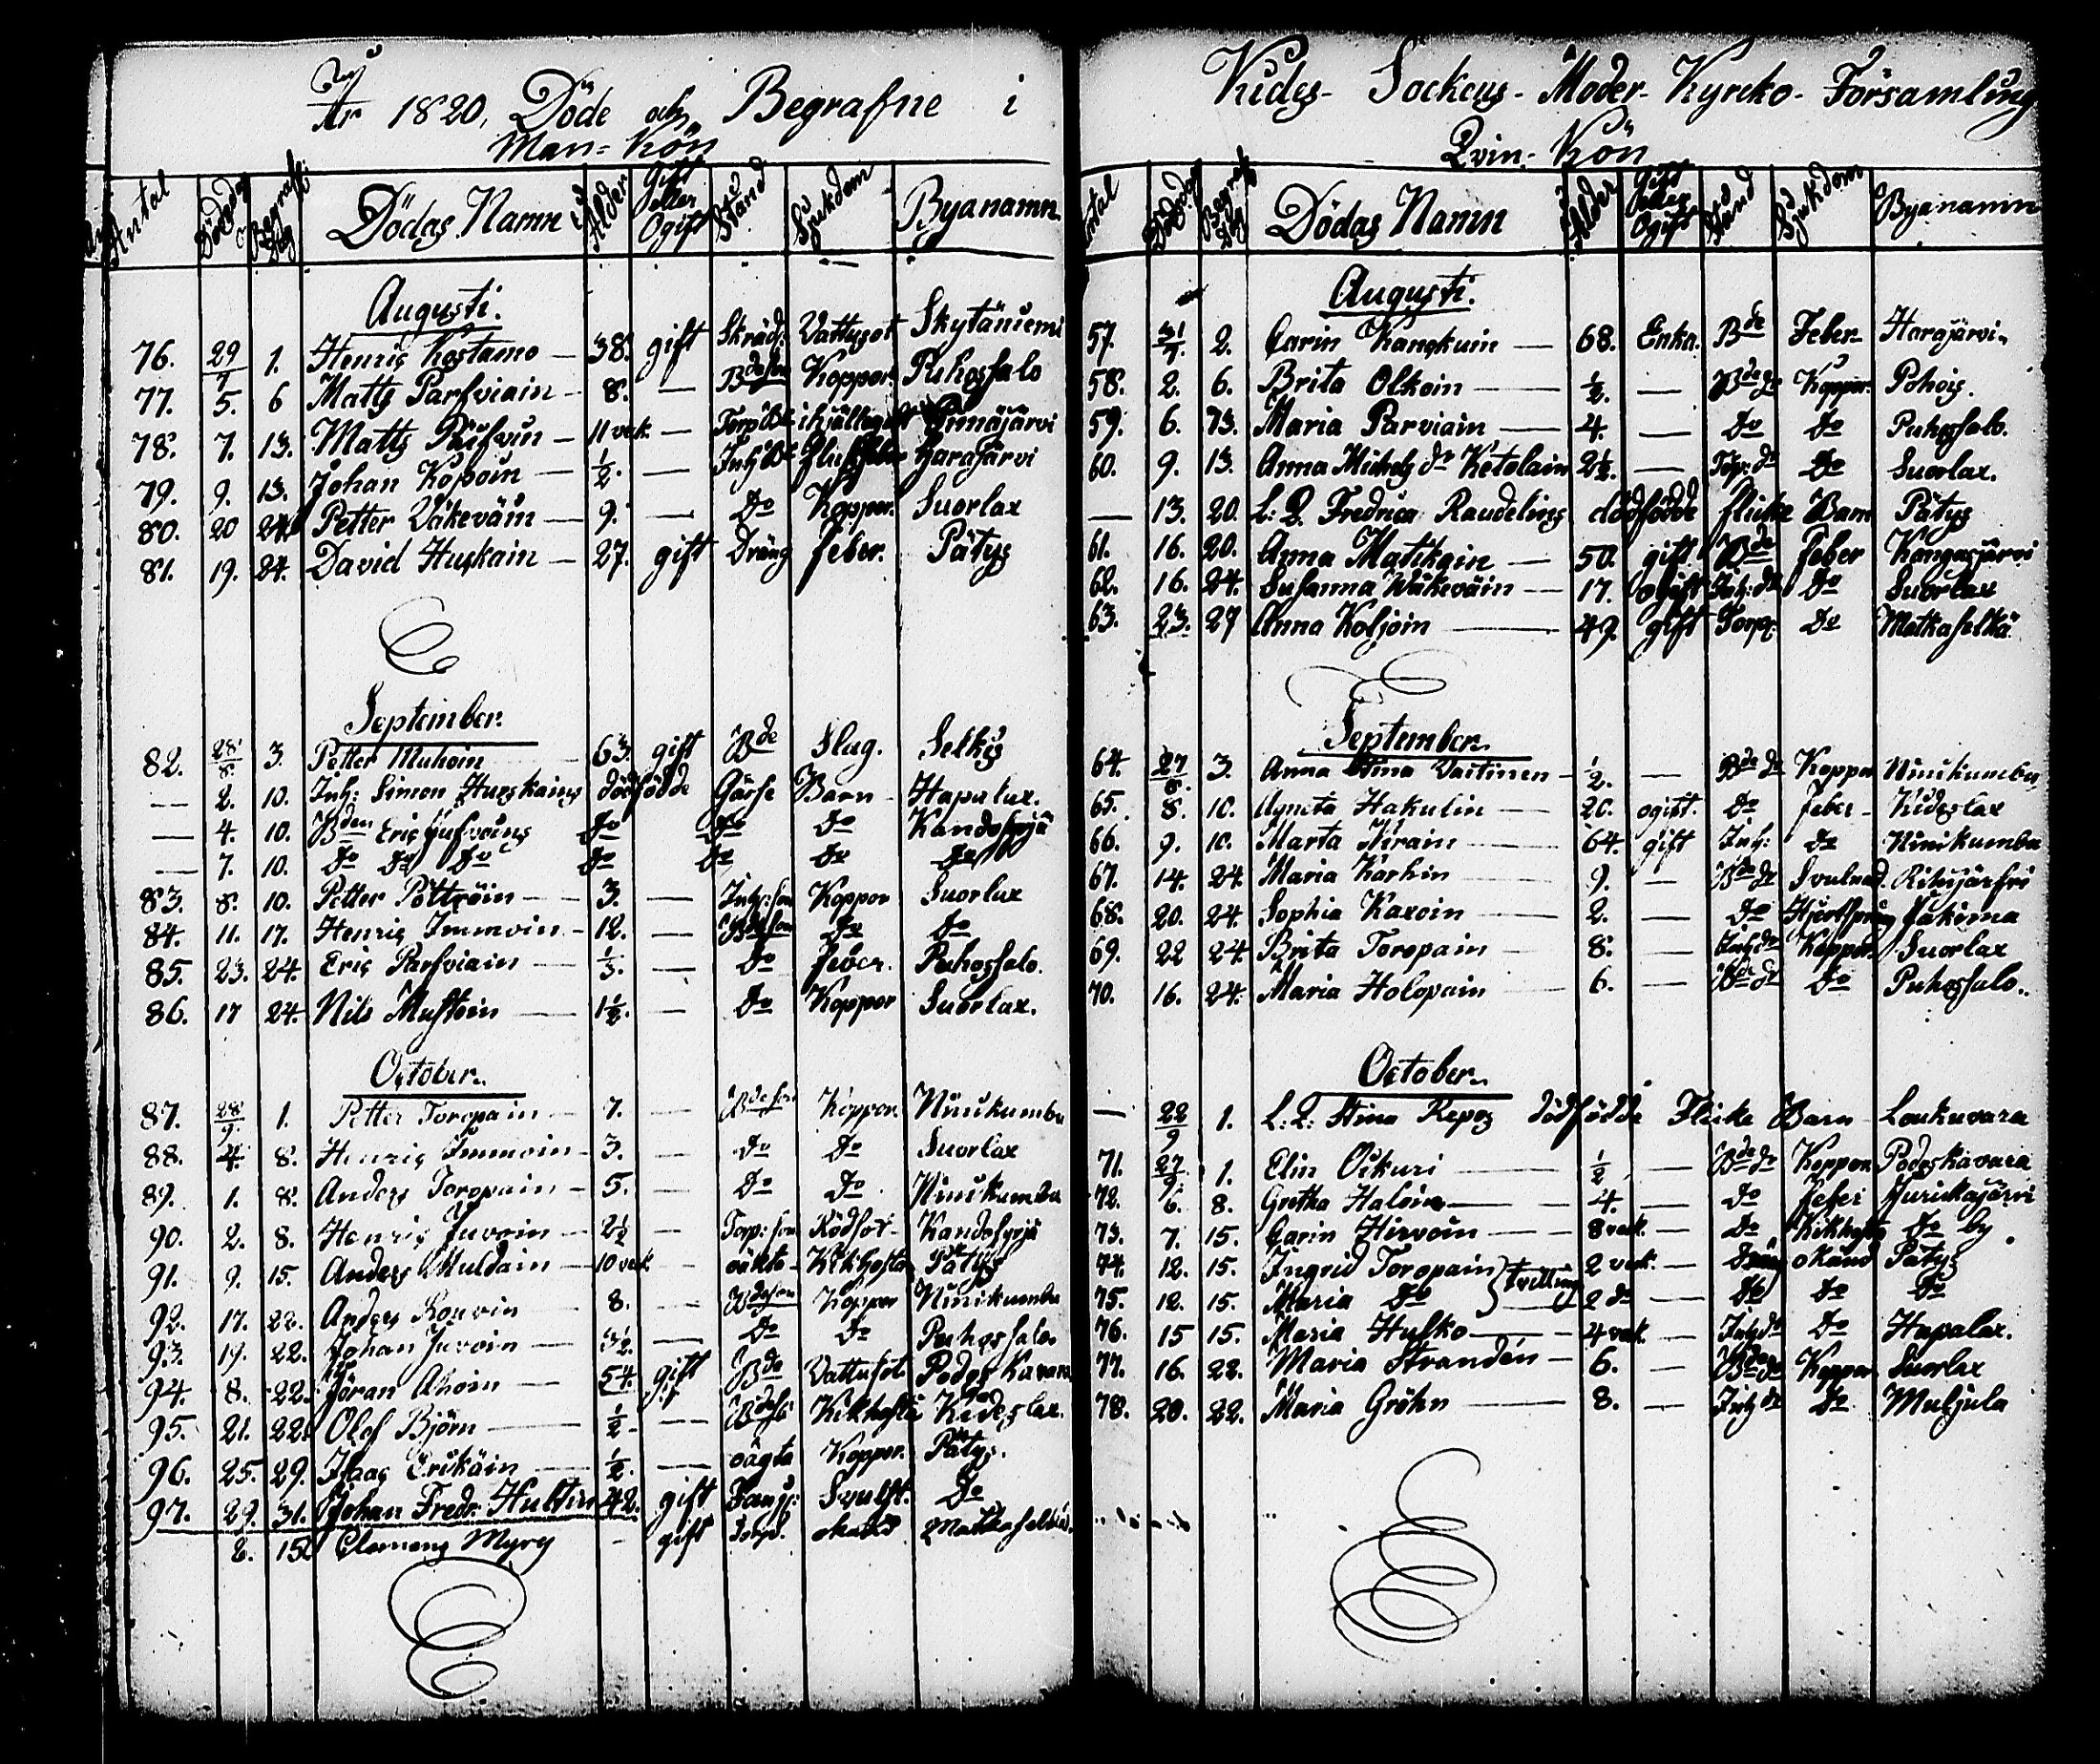 År 1820, Döde och Begrafne i
Man-Kön
Antal Dödsdag Begrafn: Dag Dödas Namn Ålder Gift eller Ogift Stånd Sjukdom Byanamn
Augusti.
76. 29/7 1. Henric Kostamo — 38. gift Skräd: Vattusot Skytäniemi
77. 5. 6 Matts Parfviain — 8. — Bdeson Koppor Puhossalo
78. 7. 13. Matts — 11 vek. — ihjälleg
79. 9. 13. Johan Kopoin — ½. — Harajärvi
80. 20 24 Petter Väkeväin — 9. — Do Koppor. Suorlax
81. 19. 24. David Huskain — 27. gift Dräng feber. Pätys
September.
82. 28/8. 3. Petter Muhoin 63. gift Bde Slag. Selkis
— 2. 10. Inh: Simon Hurskains dödfödde Gåsse Barn Hapalax.
— 4. 10. Bden Eric Jufvoins Do Do Do Kandosyrjä
— 7. 10. Do Do Do Do Do Do Do
83. 8. 10. Petter Pöttröin — 3. — Inhs: son Koppor Suorlax
84. 11. 17. Henric Immoin — 12. — Bdeson Do Do
85. 23. 24 Eric Parfviain — ⅓. — Do feber. Puhossalo.
86. 17 24. Nils Mustoin — 1½. — Do Koppor Suorlax.
October.
87. 28/9. 1. Petter Toropain — 7. — Bdeson Koppor. Niinikumbu
88. 4. 8. Henric Immoin — 3. — Do Do Suorlax
89. 1. 8. Anders Toropain — 5. — Do Do Niinikumbu
90. 2. 8. Henric Juvoin — 2½ — Torp: son Rödsot Kandosyrjä
91. 9. 15. Anders Muldain — 10 vek — oäkta Kikhosta Pätys
92. 17. 22. Anders 8. — Bdeson Koppor Niinikumbu
93. 19. 22. Johan Juvoin — 3½. — Do Do Puhossalo
94. 8. 22. Jöran Ahoin — 54. gift Bde Vattusot. Podoskavara
95. 21. 22. Olof Björn — ½ — Bdeso Kikhosta Kideslax.
96. 25. 29. Isaac — ½. — oägta Koppor. Pätys.
97. 29. 31. Johan Fredr: Hultin 42. gift Svulst. Do
2. 15 Clemens Myry - gift Torp. okänd Matkaselkä.
Kides Sockens Moder Kyrcko Församling
Qvin-Kön
Antal Dödsdag Begrafn Dag Dödas Namn Ålder Gift eller Ogift Stånd Sjukdom Byanamn
Augusti.
57. 31/7. 2. Carin Kangkuin — 68. Enka. Bde Feber Harajärvi
58. 2. 6. Brita Olkoin — ½. — Bde dr Koppor Pohois.
59. 6. 13. Maria Parviain — 4. — Do Do Puhossalo.
60. 9. 13. Anna Michels dr Ketolain 2½. — Torp: dr Do Suorlax.
— 13. 20. L: D. Fredrica Raudelins dödfödde flicke Barn Pätys
61. 16. 20. Anna Matikain — 50. gift Bde Feber Kangasjärvi
62. 16. 24. Susanna Wäkeväin — 17. ogift Inh: dr Do Suorlax
63. 23. 27 Anna Koljoin — 49. gift Torp: Do Matkaselkä
September.
64. 27/8. 3. Anna Stina Vaitinen — ½. — Bde dr Koppor Niinikumbu
65. 8. 10. Agneta Hakulin — 20. ogift. Do feber Kideslax
66. 9. 10. Marta Hirain — 64. gift Inh: Do Niinikumbu
67. 14. 24. Maria Karhin — 9. — Bde dr Svulnad. Rihijärfvi
68. 20. 24. Sophia Karoin — 2. — Do Hjertsprång Jakima
69. 22 24. Brita Toropain — 8. — Inh dr Koppor. Suorlax
70. 16. 24. Maria Holopain — 6. — Bde dr Do Puhossalo.
October.
— 22/9 1. L: D: Stina Repos dödfödde Flicke Barn Loukuvara
71. 27/9. 1. Elin Oikuri — ½ — Bde dr Koppor. Podoskavara
72. 6. 8. Gretha Haloin — 4. — Do feber Juurikajärvi
73. 7. 15. Carin Hirvoin — 8 vek. — Do Kikhosta Do by
74. 12. 15. Ingrid Toropain } Tvilling 2 vek. — Dräng okänd Pätys
75. 12. 15. Maria Do 2 do — Do Do Do
76. 15 15. Maria Hulko — 4 vek. — Inh dr Do Hapalax.
77. 16. 22. Maria Strandén — 6. — Bde dr Koppor Suorlax
78. 20. 22. Maria Gröhn — 8. — Inh dr Do Muljula